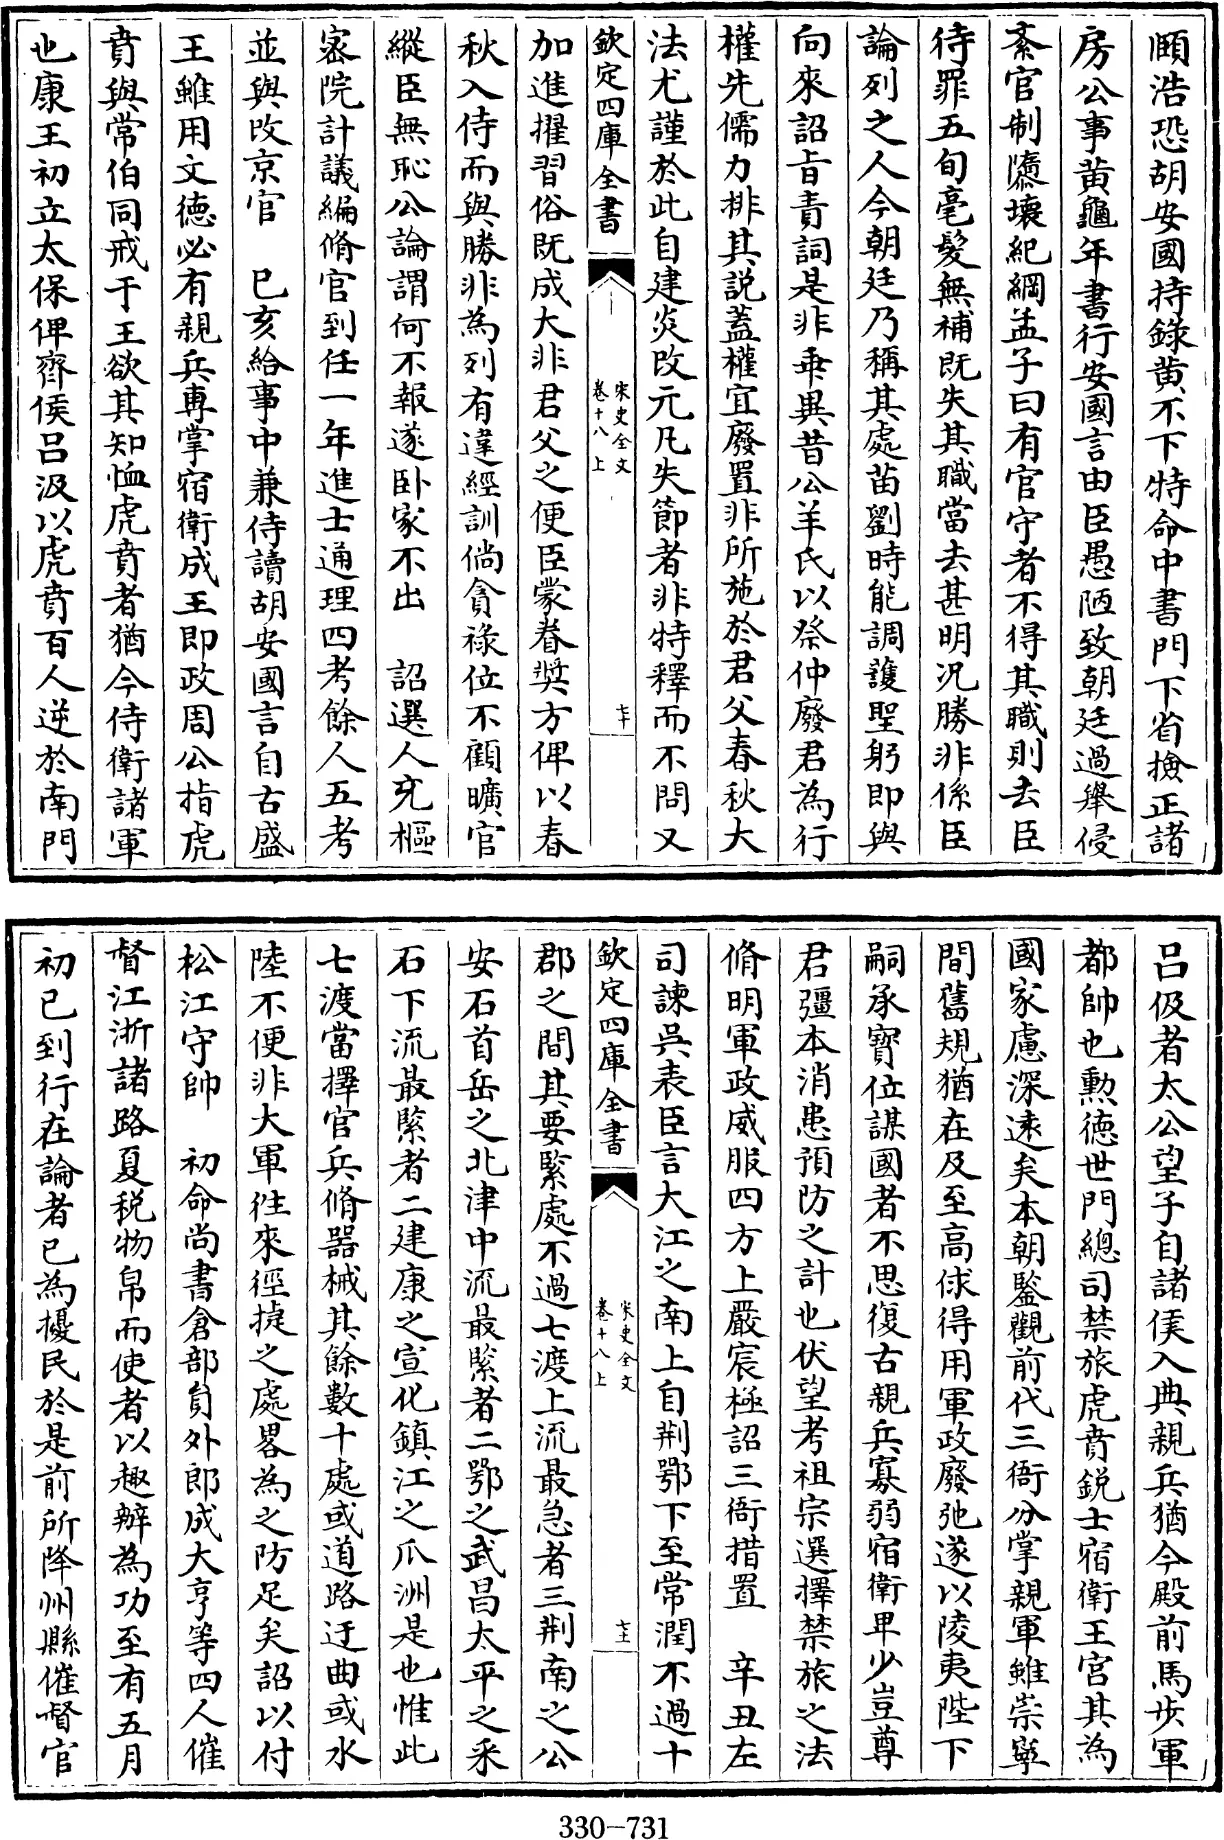 頤浩恐胡安國持錄黄不下特命中書門下省檢正諸
房公事黄龜年書行安國言由臣愚陋致朝廷過舉侵
紊官制隳壊紀綱孟子曰有官守者不得其職則去臣
待罪五旬毫髮無補既失其職當去甚明况勝非係臣
論列之人今朝廷乃稱其處苗劉時能調護聖躬即與
向來詔旨責詞是非乖異昔公羊氏以祭仲廢君為行
權先儒力排其説蓋權宜廢置非所施於君父春秋大
法尤謹於此自建炎改元凡失節者非特釋而不問又
欽定四庫全書
宋史全文
卷十八上
七十
加進擢習俗既成大非君父之便臣蒙眷奬方俾以春
秋入侍而與勝非為列有違經訓倘貪祿位不顧曠官
縱臣無恥公論謂何不報遂卧家不出　詔選人充樞
宻院計議編脩官到任一年進士通理四考餘人五考
並與改京官　已亥給事中兼侍讀胡安國言自古盛
王雖用文德必有親兵專掌宿衛成王即政周公指虎
賁與常伯同戒于王欲其知恤虎賁者猶今侍衛諸軍
也康王初立太保俾齊侯呂汲以虎賁百人逆於南門
呂伋者太公望子自諸侯入典親兵猶今殿前馬步軍
都帥也勲徳世門總司禁旅虎賁鋭士宿衛王宫其為
國家慮深逺矣本朝鑒觀前代三衙分掌親軍雖崇寧
間舊規猶在及至高俅得用軍政廢弛遂以陵夷陛下
嗣承寳位謀國者不思復古親兵寡弱宿衛單少豈尊
君彊本消患預防之計也伏望考祖宗選擇禁旅之法
脩明軍政威服四方上嚴宸極詔三衙措置　辛丑左
司諫吳表臣言大江之南上自荆鄂下至常潤不過十
欽定四庫全書
宋史全文
卷十八上
七十一
郡之間其要緊處不過七渡上流最急者三荆南之公
安石首岳之北津中流最緊者二鄂之武昌太平之采
石下流最緊者二建康之宣化鎮江之瓜洲是也惟此
七渡當擇官兵脩器械其餘數十處或道路迂曲或水
陸不便非大軍徃來徑捷之處畧為之防足矣詔以付
松江守帥　初命尚書倉部員外郎成大亨等四人催
督江浙諸路夏税物帛而使者以趣辦為功至有五月
初已到行在論者已為擾民於是前所降州縣催督官
330-731